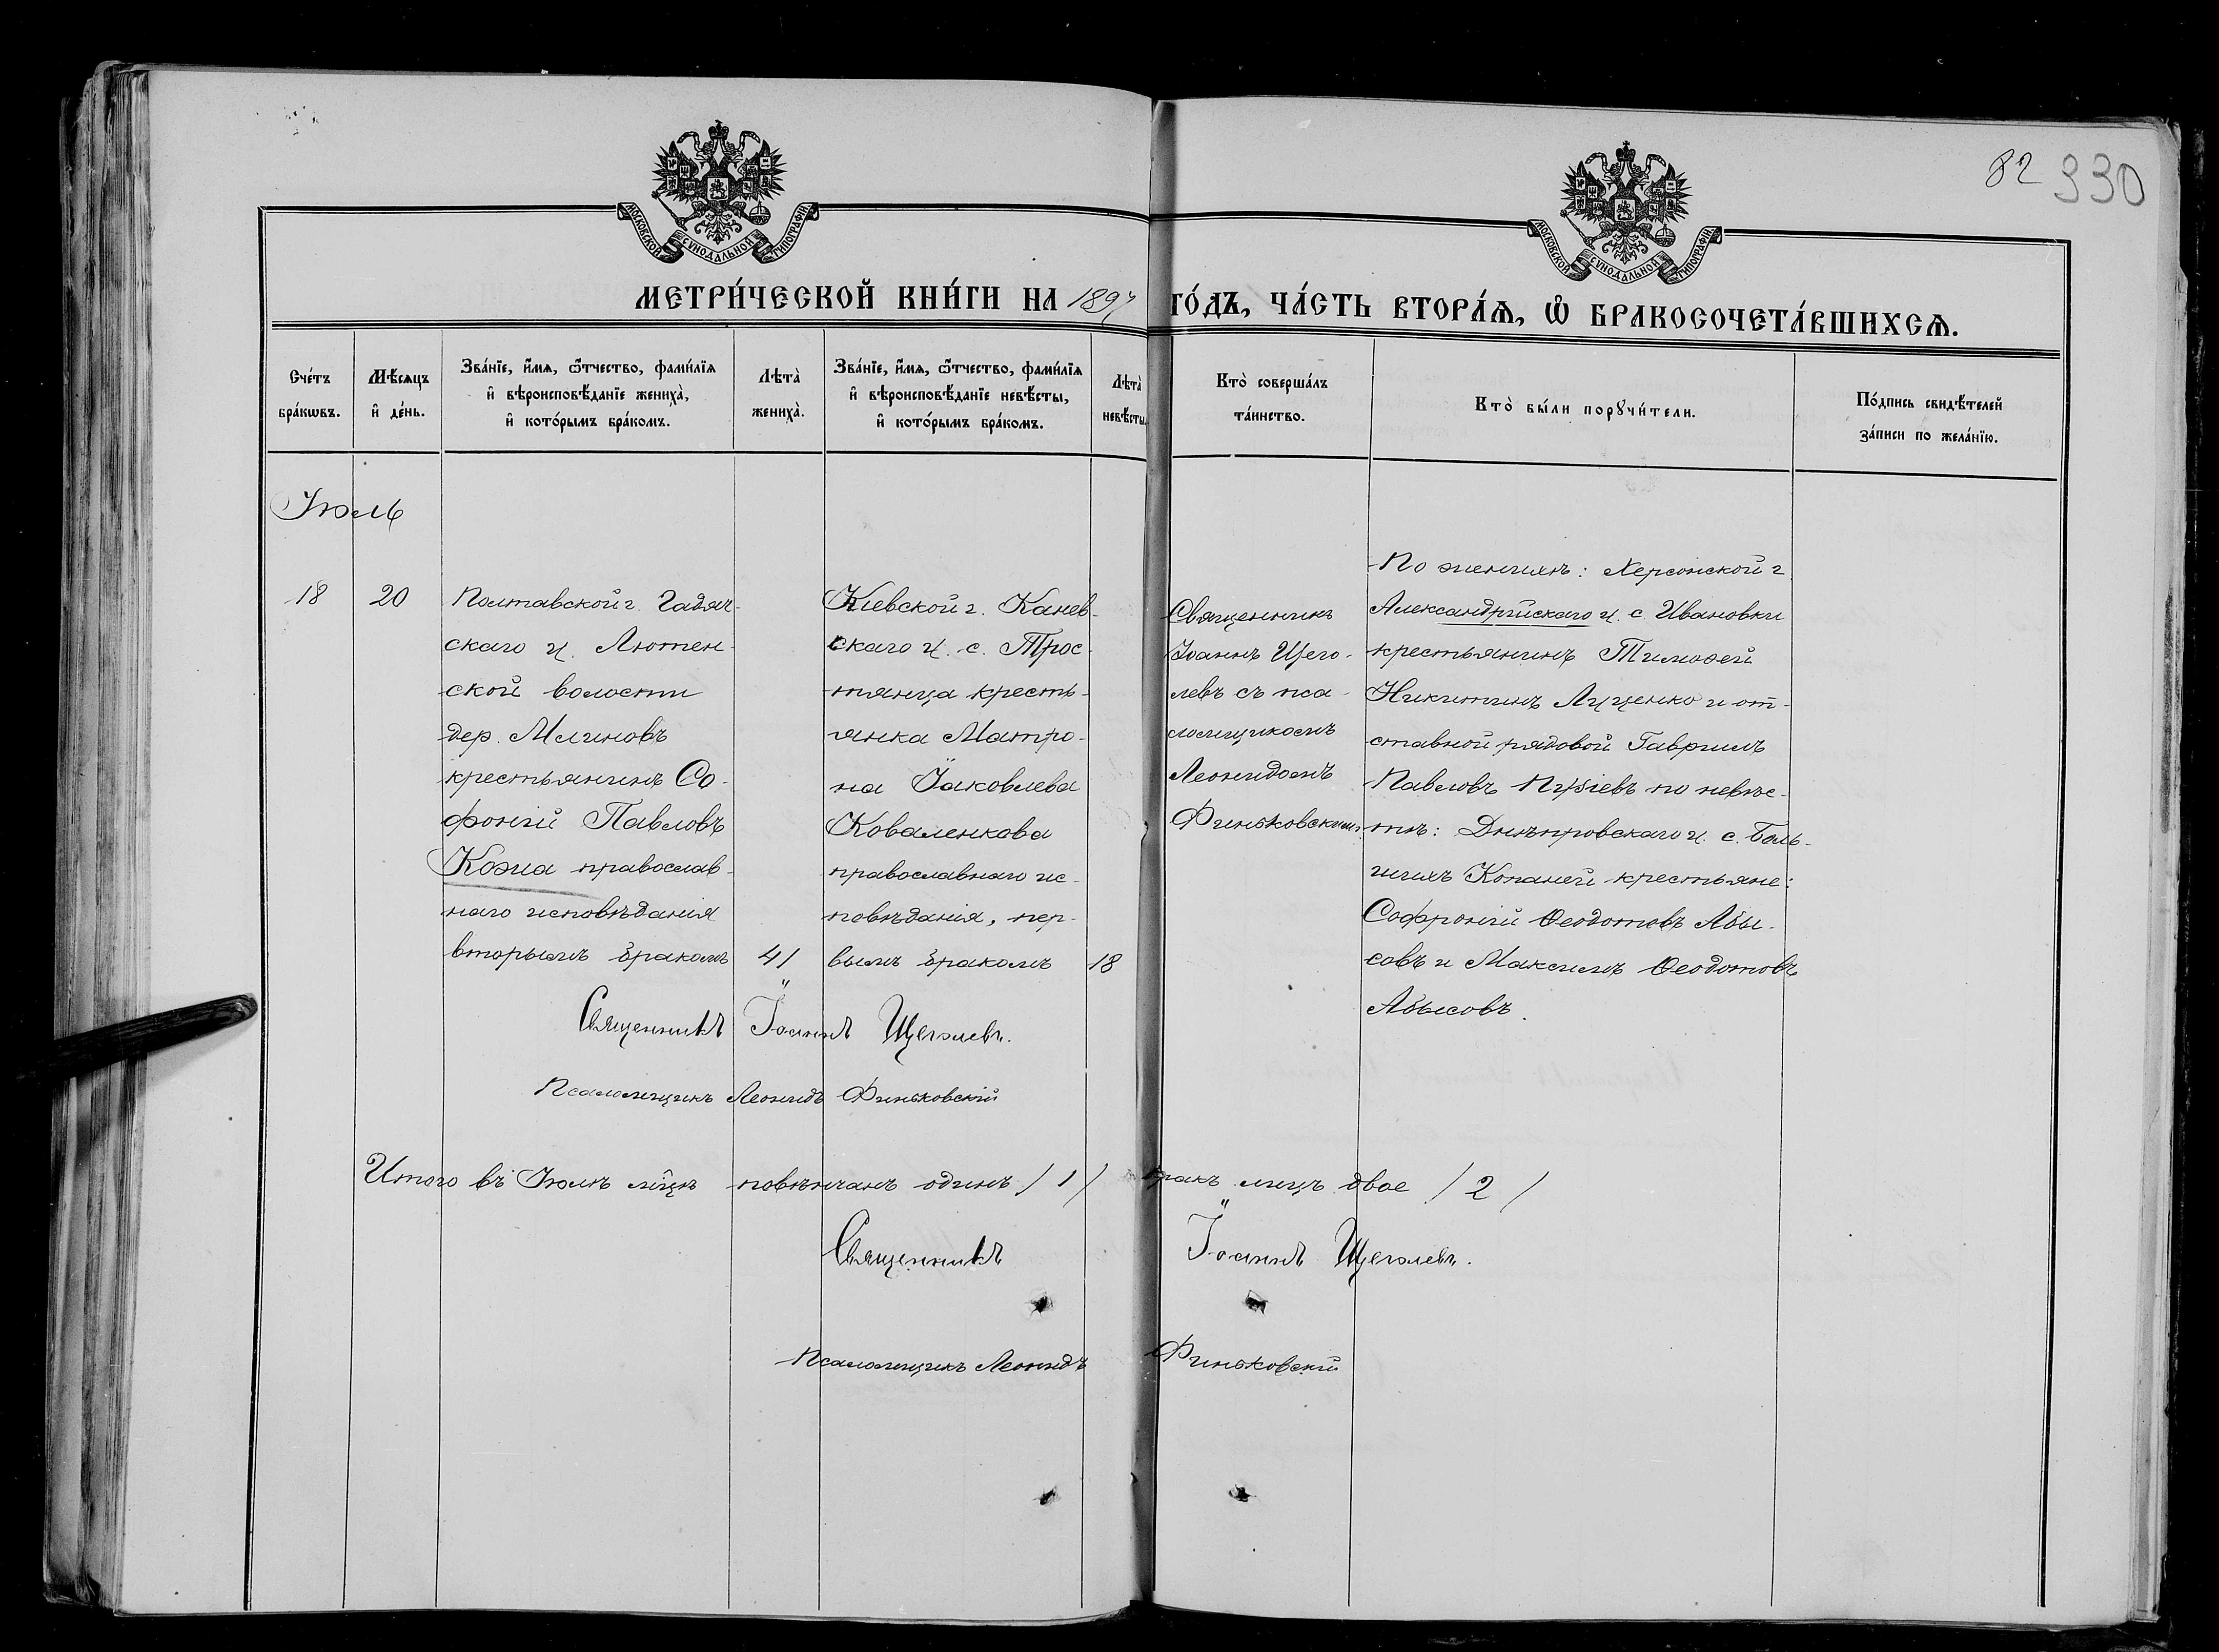 82 330
МОСКОВСКОЙ СУНОДАЛЬНОЙ ТИПОГРАФІИ
МОСКОВСКОЙ СУНОДАЛЬНОЙ ТИПОГРАФІИ
МЕТРИ́ЧЕСКОЙ КНИ́ГИ НА 1897 ГО́ДЪ, ЧА́СТЬ ВТОРА́Ѧ, Ѡ҆ БРАКОСОЧЕТА́ВШИХСѦ.
Сче́тъ
бра́кѡвъ.
Мѣ́сяцъ
и҆ де́нь.
Зва́нїе, и҆́мѧ, ѻ҆́тчество, фами́лїѧ
и҆ вѣроисповѣ́данїе жениха̀,
и҆ кото́рымъ бра́комъ.
Лѣта̀
жениха̀.
Зва́нїе, и҆́мѧ, ѻ҆́тчество, фами́лїѧ
и҆ вѣроисповѣ́данїе невѣ́сты,
и҆ кото́рымъ бра́комъ.
Лѣта̀
невѣ́сты.
Кто̀ соверша́лъ
та́инство.
Кто̀ бы́ли порꙋчи́тели.
По́дпись свидѣ́телей
за́писи по жела́нїю.
Іюль
18
20
Полтавской г. Гадяч-
скаго у. Лютен-
ской волости
дер. Млиновъ
крестьянинъ Со-
фоній Павловъ
Кожа православ-
наго исповѣданія
вторымъ бракомъ
41
Кіевской г. Канев-
скаго у. с. Трос-
тянца кресть-
янка Матро-
на Іаковлева
Коваленкова
православнаго ис-
повѣданія, пер-
вымъ бракомъ
18
Священникъ
Іоаннъ Щего-
левъ съ пса-
ломщикомъ
Леонидомъ
Финьковскимъ
По женихѣ: Херсонской г.
Александрійскаго у. с. Ивановки
крестьянинъ Тимоѳей
Никитинъ Луценко и от-
ставной рядовой Гавриилъ
Павловъ по невѣс-
тѣ: Днѣпровскаго у. с. Боль-
шихъ Копаней крестьяне:
Софроній Ѳеодотовъ Абы-
совъ и Максимъ Ѳеодотовъ
Абысовъ.
Священникъ Іоаннъ Щеголевъ.
Псаломщикъ Леонидъ Финьковскій
Итого въ Іюлѣ мѣцѣ повѣнчанъ одинъ /1/ бракъ лицъ двое /2/
Священникъ Іоаннъ Щеголевъ.
Псаломщикъ Леонидъ Финьковскій